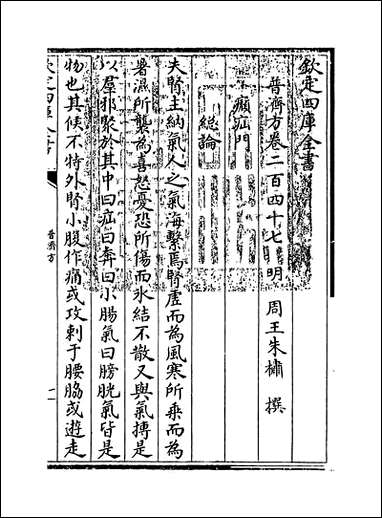 欽定四庫全書
普濟方卷二百四十七 明 周王朱橚 撰
㿗疝門
總論
夫腎主納氣人之氣海繫焉腎虛而為風寒所乘而為
暑濕所襲為喜怒憂恐所傷而水結不散又與氣搏是
以羣邪聚於其中曰疝曰奔曰小腸氣曰膀胱氣皆是
物也其候不特外腎小腹作痛或攻刺于腰脇或遊走
普濟方